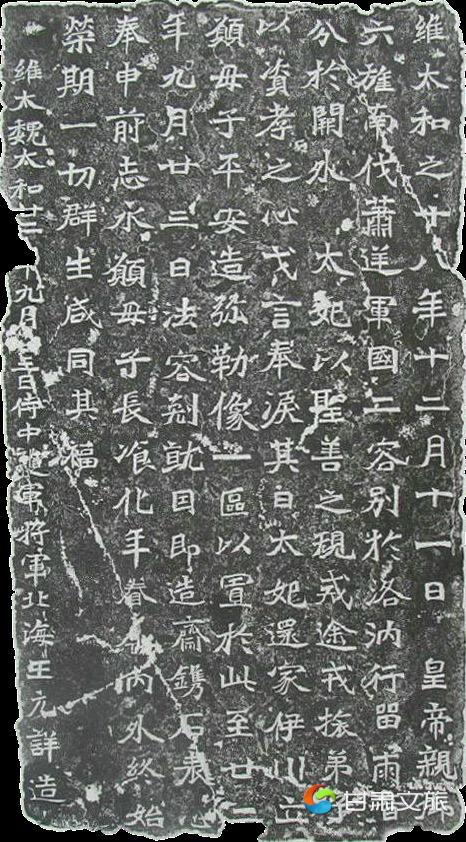 維太和之十八年十二月十一日 皇帝親御
六旌南伐蕭逆軍國二容別於洛汭行留兩音
分於闕外 太妃以聖善之規戒途戎旅弟子
以資孝之心戈言奉淚其日太妃還家伊川立
願母子平安造弥勒像一區以置於此至廿二
年九月廿三日法容剋就因即造齋鐫石表
奉申前志永願母子長飡化年眷內外終始
榮期一切群生咸同其福
維大魏太和廿二九月廿三日侍中護軍將軍北海王元詳造
甘肃文旅